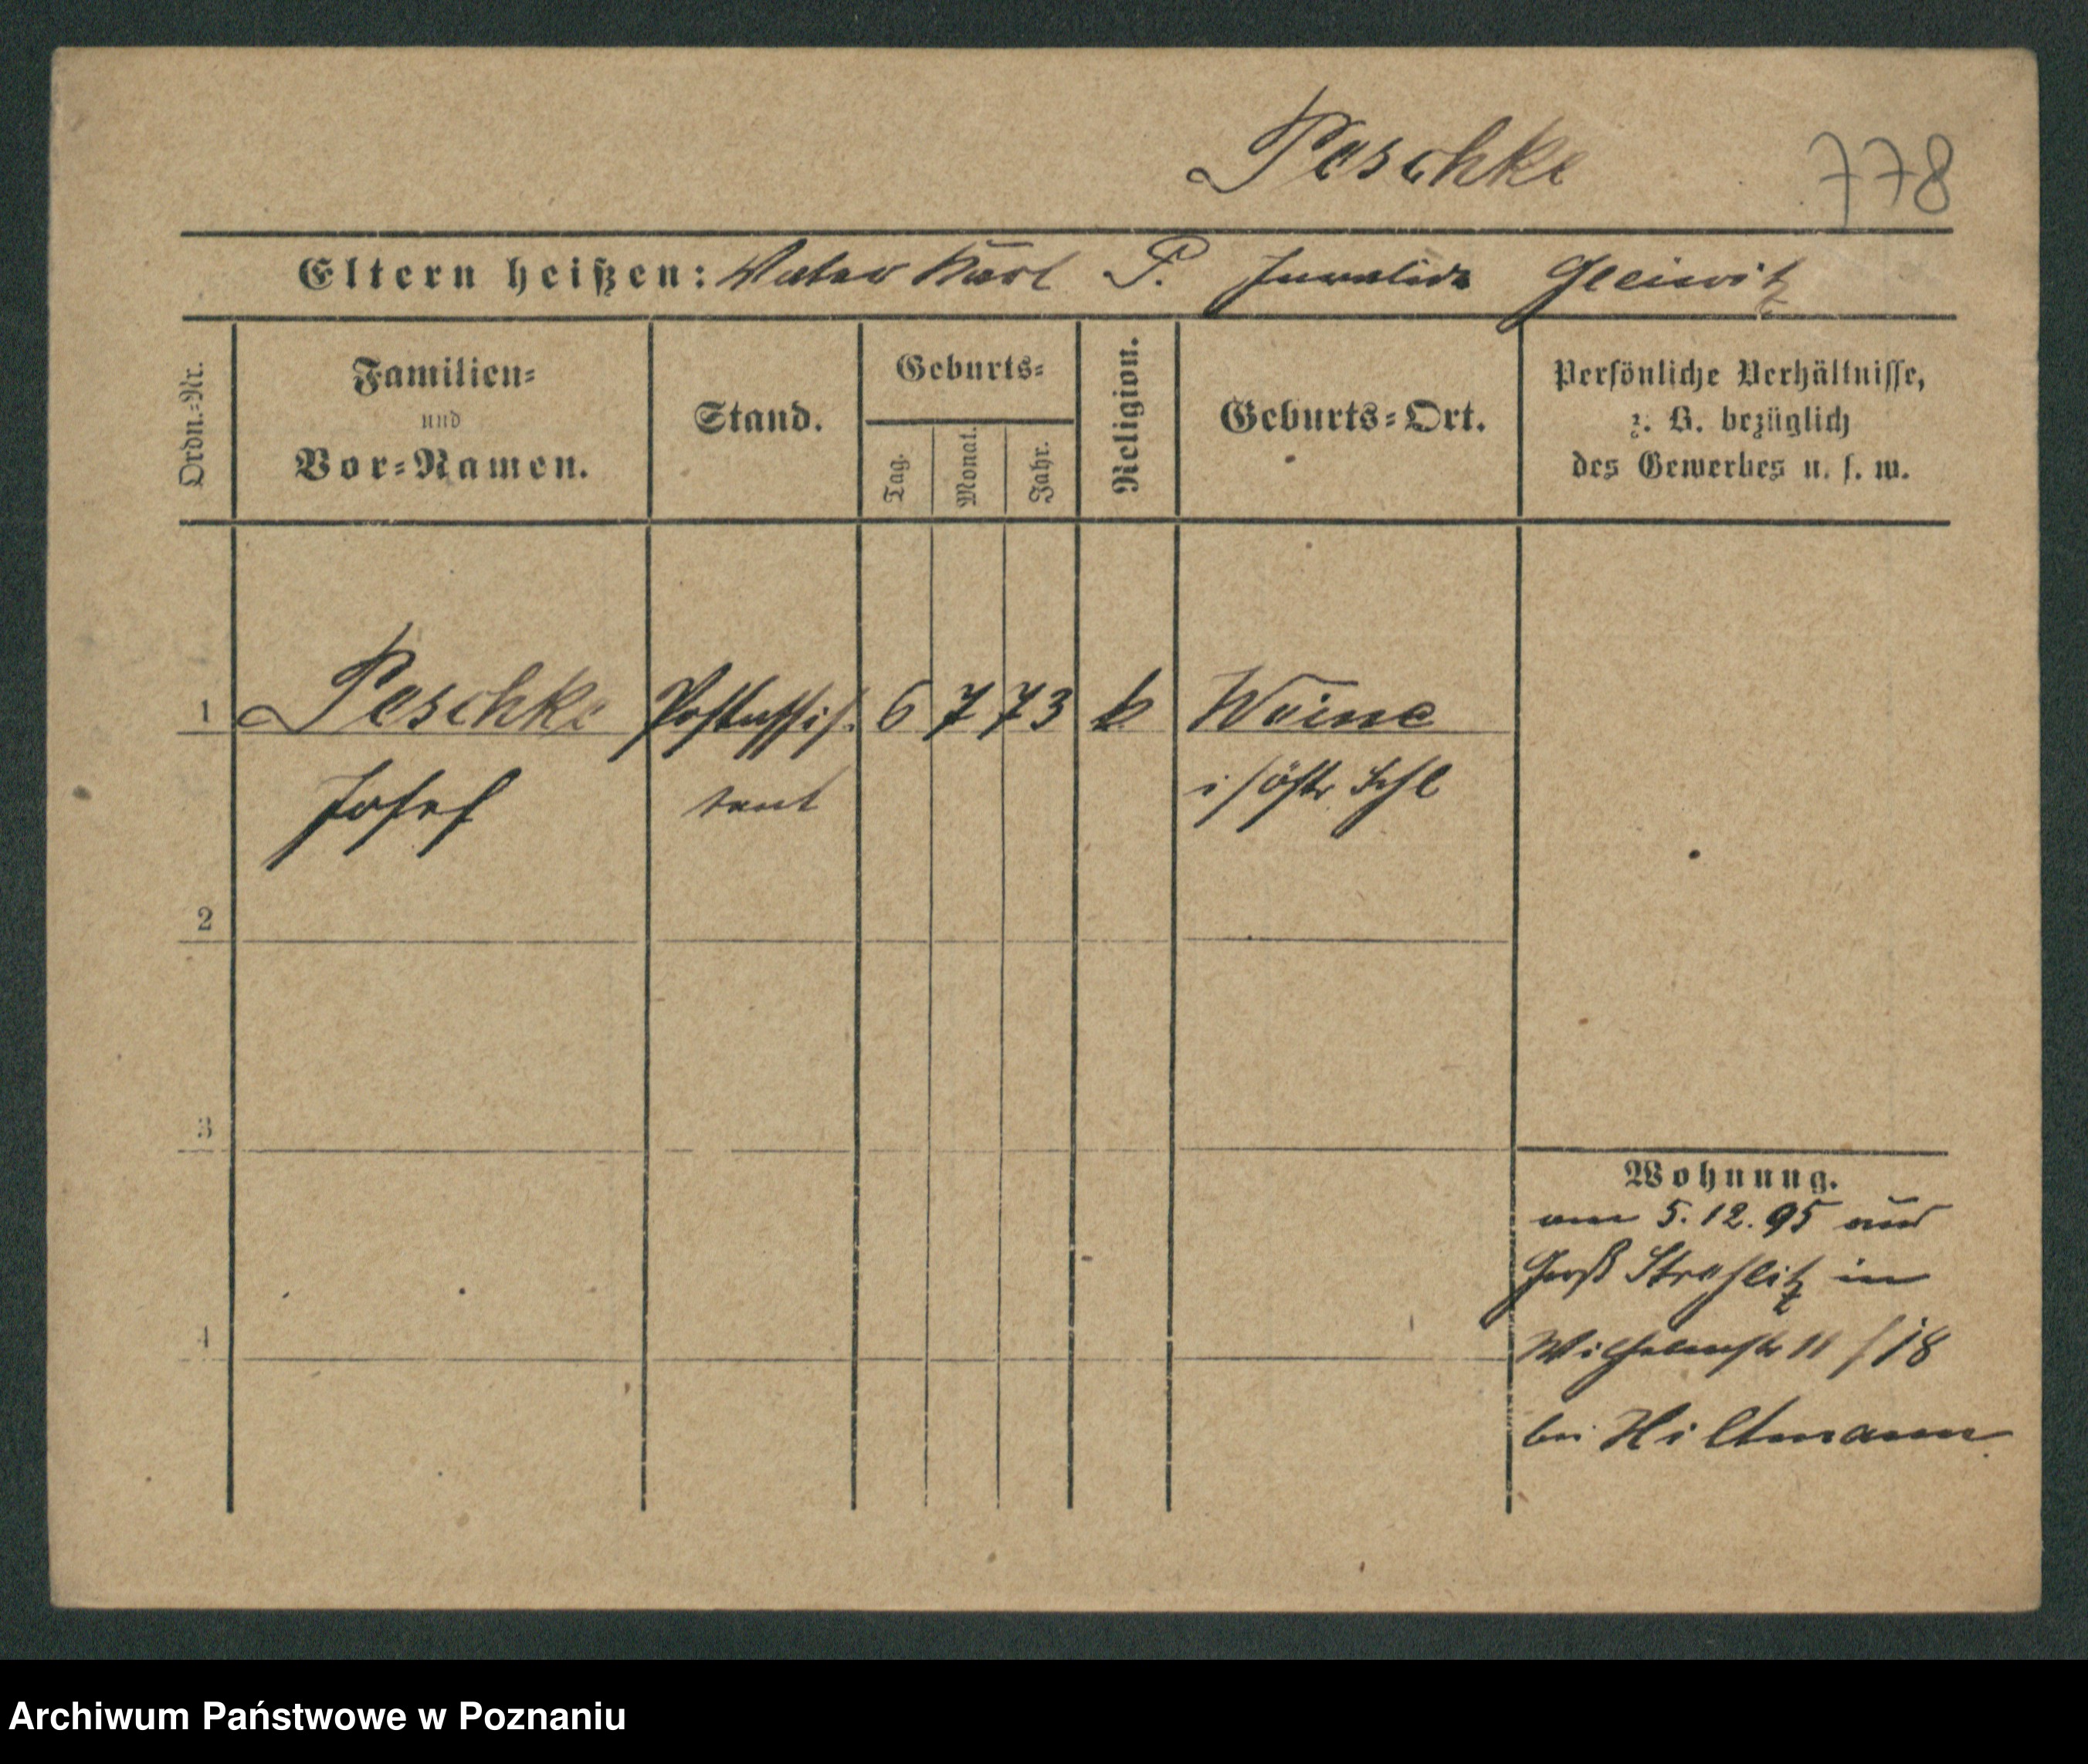 Peschke 778
Eltern heißen: Vater Karl P. Invalide Gleiwitz
Ordn.-Nr.
Familien-
und
Vor-Namen.
Stand.
Geburts-
Tag.
Monat.
Jahr.
Religion.
Geburts-Ort.
Persönliche Verhältnisse,
z. B. bezüglich
des Gewerbes u. s. w.
1 Peschke Postassis 6 7 73 k
Josef tant i/östr. Schl
2
3
4
Wohnung.
am 5. 12. 95 aus
Groß Strehlitz in
Wilhelmstr 11 / 18
bei Hiltmann
Archiwum Państwowe w Poznaniu